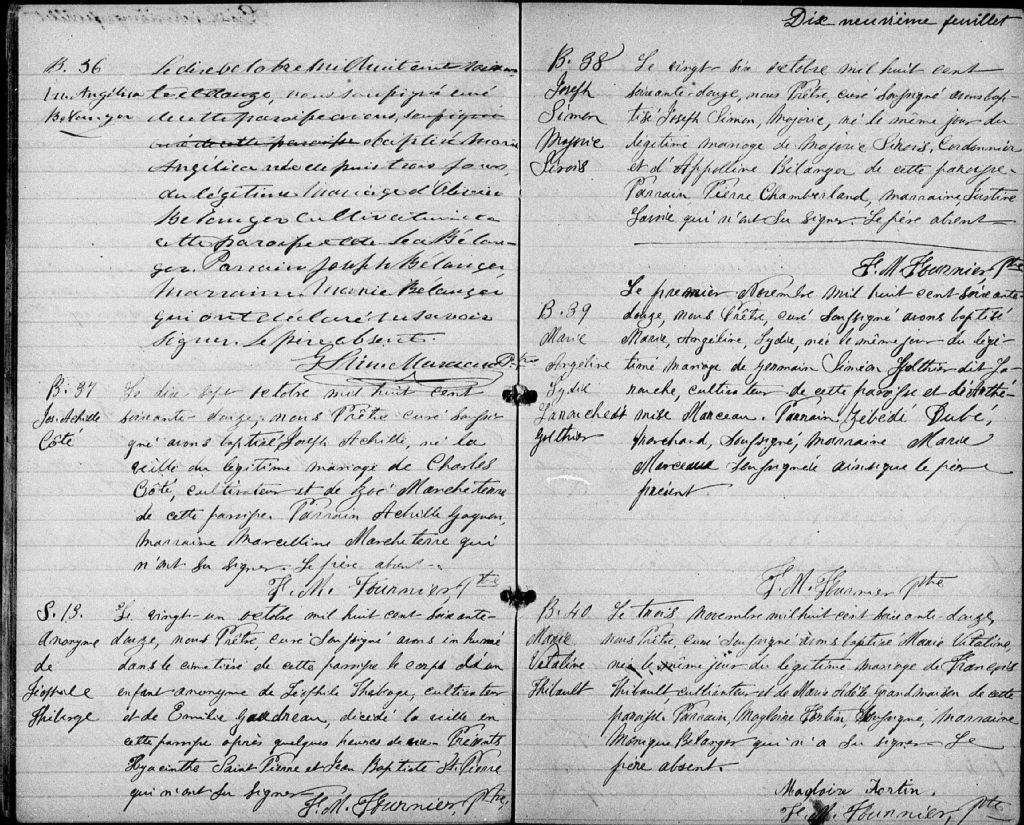 B. 36
Le dix octobre mil huit cent soixan
M. Angélica
te et douze, nous soussigné curé
Belanger
de cette paroisse avons, soussigné
curé de cette paroisse baptisé Marie
Angélica née depuis trois jours,
du légitime mariage d'Olivier
Belanger cultivateur de
cette paroisse et de Léa Bélan-
ger. Parrain Joseph Bélanger
Marraine Marie Belanger
qui ont déclaré ne savoir
signer. Le père absent.
Ptre
B. 37
Le dix sept octobre mil huit cent
Jos. Achille
soixante-douze, nous Prêtre curé soussi-
Côté
gné avons baptisé, Joseph Achille, né la
veille du légitime mariage de Charles
Côté, cultivateur et de Zoé Marcheterre
de cette paroisse. Parrain Achille Gagnon,
marraine Marcelline Marcheterre qui
n'ont su signer. Le père absent.
F. M. Fournier Ptre
S. 13.
Le vingt-un octobre mil huit cent soixante-
Anonyme
douze, nous Prêtre, curé soussigné avons inhumé
de
dans le cimetière de cette paroisse le corps d'un
Théophile
enfant anonyme de Théophile Thiberge, cultivateur
Thiberge
et de Emilie Gaudreau, décédé la veille en
cette paroisse après quelques heures de vie. Présents
Hyacinthe Saint Pierre et Jean Baptiste St. Pierre
qui n'ont su signer
F. M. Fournier, Ptre
Dix neuvième feuillet
B. 38
Le vingt six octobre mil huit cent
Joseph
soixante-douze, nous Prêtre, curé soussigné avons bap-
Simon
tisé Joseph Simon, Majorie, né le même jour du
Majorie
légitime mariage de Majorie Sirois, Cordonnier
Sirois
et d'Appolline Bélanger de cette paroisse.
Parrain Pierre Chamberland, marraine Justine
Lavoie qui n'ont su signer. Le père absent
F. M. Fournier Ptre
Le premier Novembre mil huit cent soixante
B. 39
douze, nous Prêtre, curé soussigné avons baptisé
Marie
Marie, Angéline, Lydie, née le même jour du légi-
Angéline
time mariage de Germain Siméon Golthier dit La-
Lydie
ranche, cultivateur de cette paroisse et de Arthé-
Laranche dt
mise Marceau. Parrain Zébédé Dubé,
Golthier
Marchand, soussigné, marraine Marie
Marceau soussignée ainsi que le père
présent
F. M. Fournier ptre
B. 40
Le trois novembre mil huit cent soixante douze,
Marie
nous Prêtre, curé soussigné avons baptisé Marie Vitaline,
Vitaline
née le même jour du légitime mariage de François
Thibault
Thibault cultivateur et de Marie Adèle Grandmaison de cette
paroisse. Parrain, Magloire Fortin, soussigné, marraine
Monique Bélanger qui n'a su signer. Le
père absent.
Magloire Fortin.
F. M. Fournier, Ptre